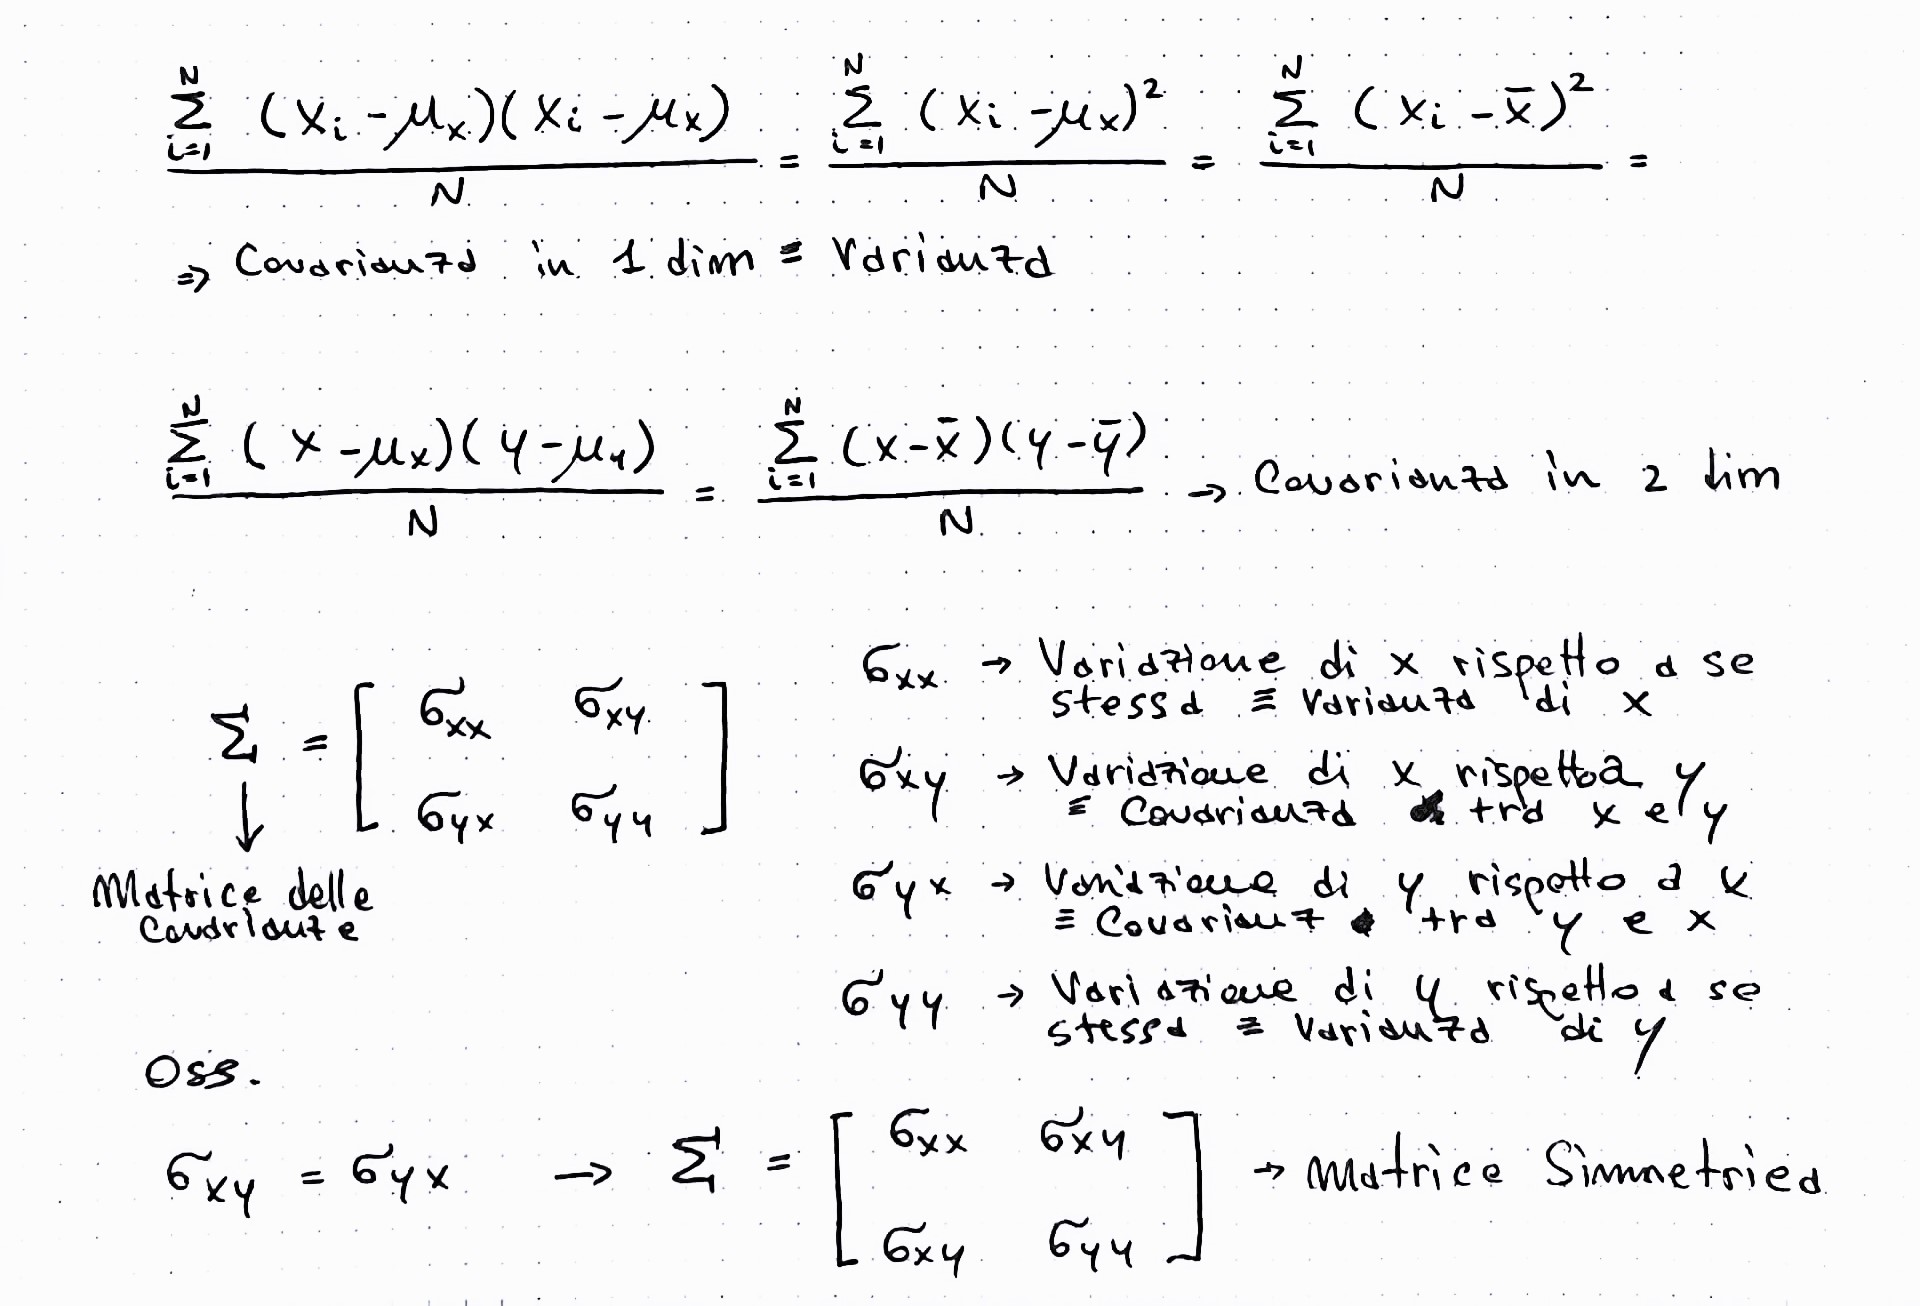 $\frac{\sum_{i=1}^{N} (x_i - \mu_x)(x_i - \mu_x)}{N} = \frac{\sum_{i=1}^{N} (x_i - \mu_x)^2}{N} = \frac{\sum_{i=1}^{N} (x_i - \bar{x})^2}{N} =$
⇒ Covarianza in 1 dim ≡ Varianza
$\frac{\sum_{i=1}^{N} (x - \mu_x)(y - \mu_y)}{N} = \frac{\sum_{i=1}^{N} (x - \bar{x})(y - \bar{y})}{N}$ → Covarianza in 2 dim
$\Sigma = \begin{bmatrix} \sigma_{xx} & \sigma_{xy} \\ \sigma_{yx} & \sigma_{yy} \end{bmatrix}$
↓
Matrice delle
Covarianze
$\sigma_{xx}$ → Variazione di x rispetto a se
stessa ≡ Varianza di x
$\sigma_{xy}$ → Variazione di x rispetto a y
≡ Covarianza tra x e y
$\sigma_{yx}$ → Variazione di y rispetto a x
≡ Covarianz tra y e x
$\sigma_{yy}$ → Variazione di y rispetto a se
stessa ≡ Varianza di y
Oss.
$\sigma_{xy} = \sigma_{yx}$ → $\Sigma = \begin{bmatrix} \sigma_{xx} & \sigma_{xy} \\ \sigma_{xy} & \sigma_{yy} \end{bmatrix}$ → Matrice Simmetrica